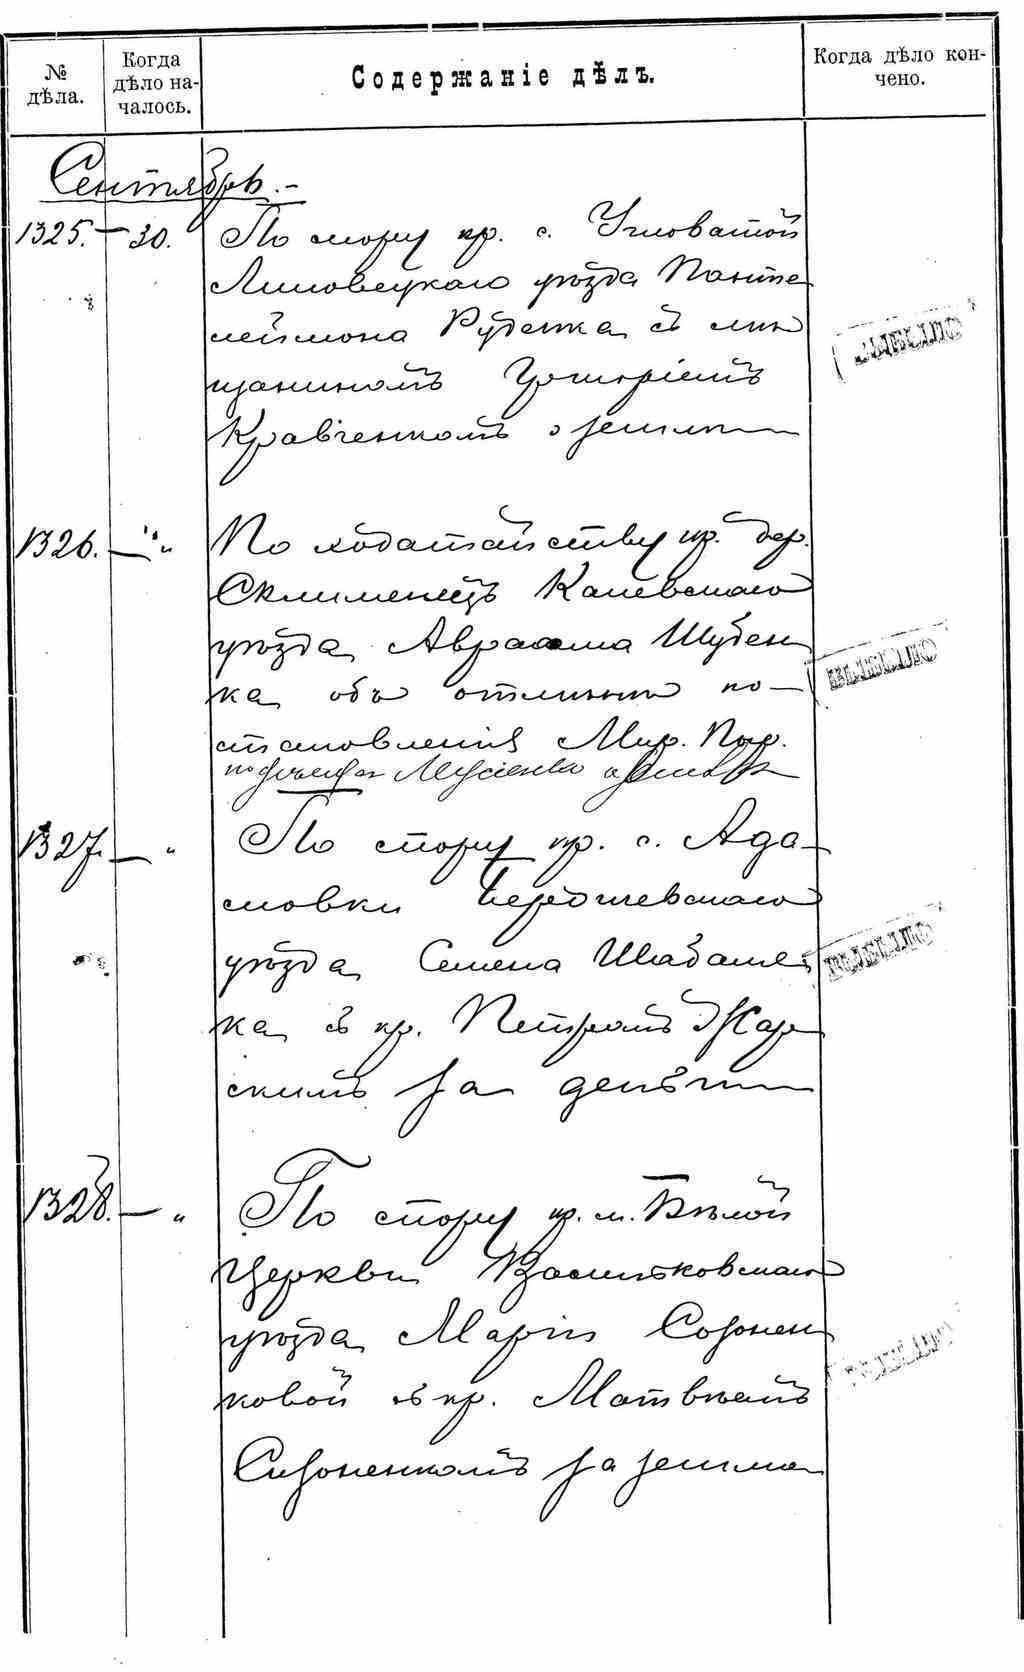 № дѣла.
Когда дѣло на-
чалось.
Содержаніе дѣлъ.
Когда дѣло кон-
чено.
Сентябрь.-
1325. — 30. По спору кр. с. Угловатой
Липовецкаго уѣзда Панте
леймона Руденка съ мѣ
щаниномъ Григоріемъ
Кравченкомъ о землѣ
1326. — " По ходатайству кр. дер.
Склименецъ Каневскаго
уѣзда Авраама Шубен
ка объ отмѣнѣ по-
становленія Мир. Поср.
1327. — " По спору кр. с. Ада-
мовки Бердичевскаго
уѣзда Семена Шабашо
ка съ кр. Петромъ Жар
скимъ за деньги
1328. — " По спору кр. м. Бѣлой
Церкви Васильковскаго
уѣзда Маріи Созонен
ковой съ кр. Матвѣемъ
Созоненкомъ за землю